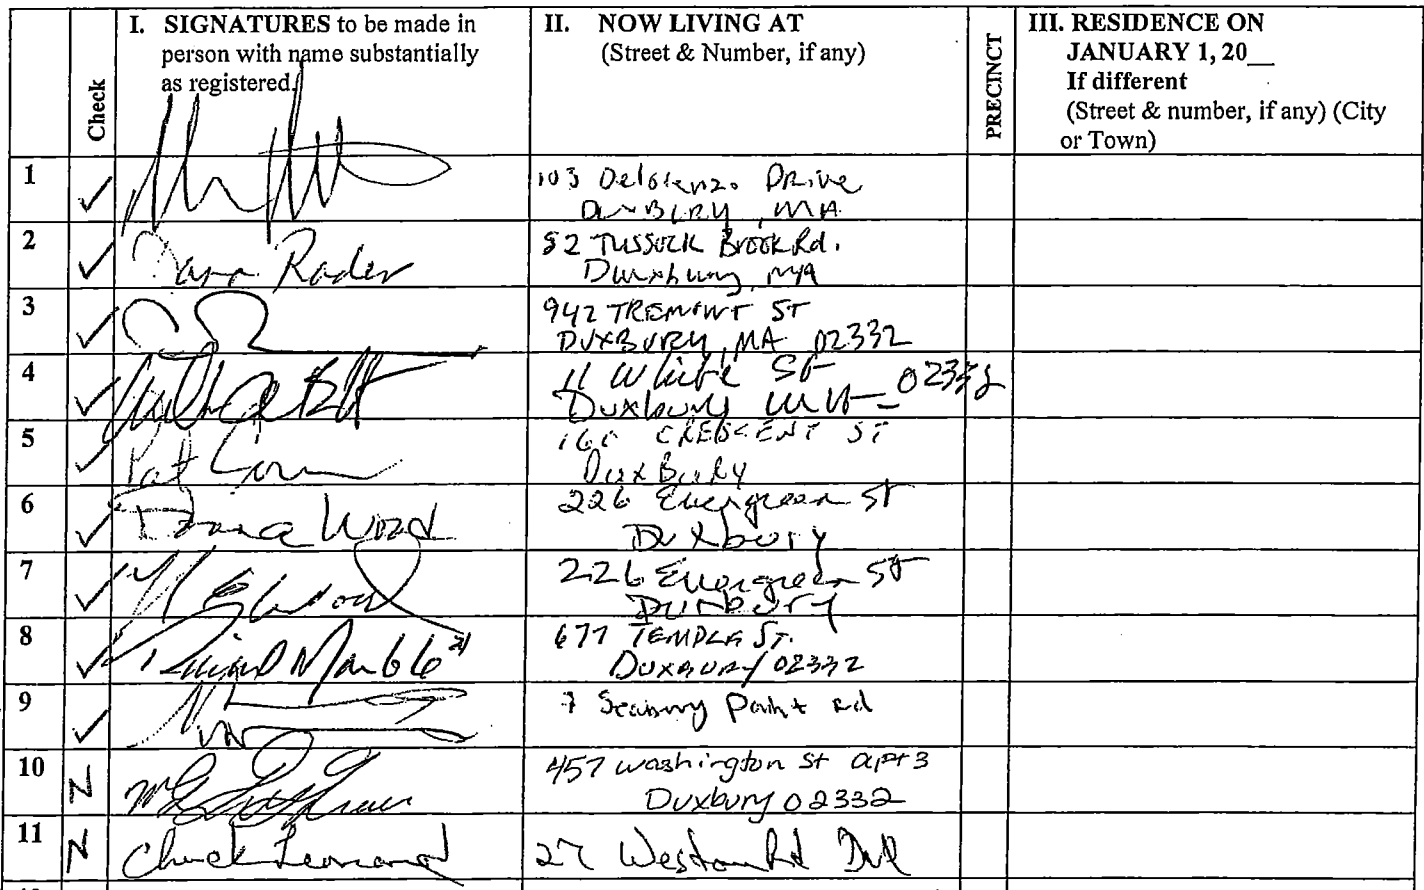 Check
I. SIGNATURES to be made in
person with name substantially
as registered.
II. NOW LIVING AT
(Street & Number, if any)
PRECINCT
III. RESIDENCE ON
JANUARY 1, 20__
If different
(Street & number, if any) (City
or Town)
1 ✓
103 Drive
Duxbury, MA
2 ✓ Rader
82 TUSSOCK BROOK Rd.
Duxbury, MA
3 ✓
942 TREMONT ST
DUXBURY, MA 02332
4 ✓
11 White St
Duxbury MA - 02332
5 ✓ Pat
CRESCENT ST
Duxbury
6 ✓ Donna Wood
226 Evergreen St
Duxbury
7 ✓
226 Evergreen St
Duxbury
8 ✓ Marble
677 TEMPLE ST.
DUXBURY 02332
9 ✓
7 Seabury Point Rd
10 N
457 washington St apt 3
Duxbury 02332
11 N Chuck Leonard
27 Weston Rd Dux